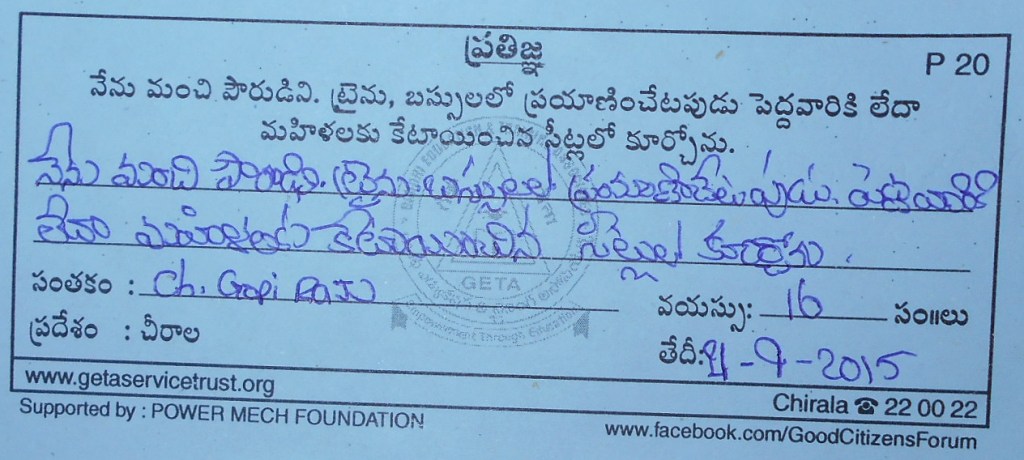 ప్రతిజ్ఞ
P 20
నేను మంచి పౌరుడిని. ట్రైను, బస్సులలో ప్రయాణించేటపుడు పెద్దవారికి లేదా
మహిళలకు కేటాయించిన సీట్లలో కూర్చోను.
నేను మంచి పౌరుడిని. ట్రైను బస్సులలో ప్రయాణించేటపుడు. పెద్దవారికి
లేదా మహిళలకు కేటాయించిన సీట్లల్లో కూర్చోను.
సంతకం : Ch. Gopi Raju వయస్సు: 16 సం॥లు
ప్రదేశం : చీరాల తేదీ: -9-2015
GETA
Empowerment Through Education
www.getaservicetrust.org Chirala ☎ 22 00 22
Supported by : POWER MECH FOUNDATION www.facebook.com/GoodCitizensForum